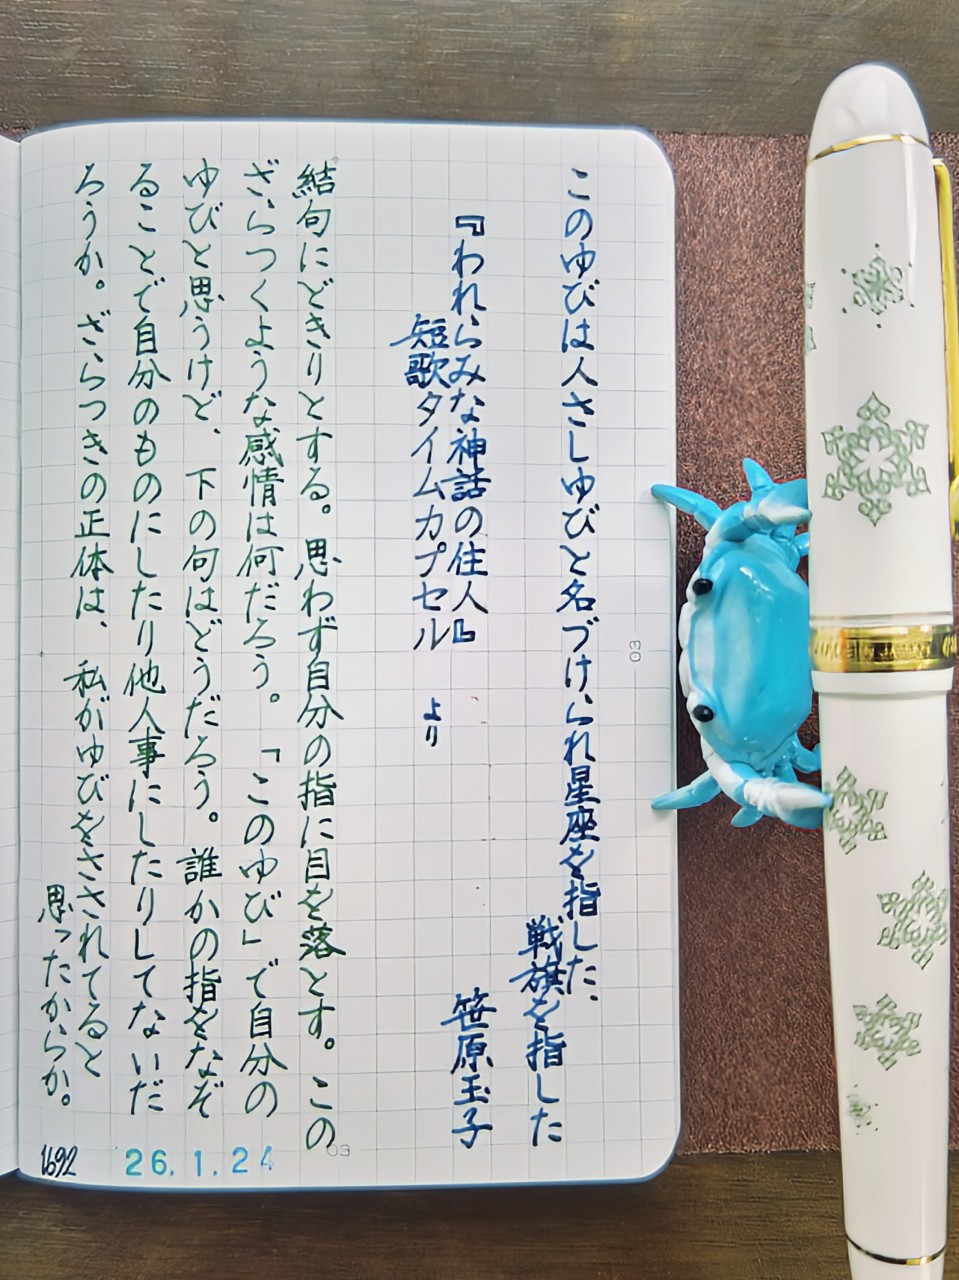 このゆびは人さしゆびと名づけられ星座を指した、
戦旗を指した
『われらみな神話の住人』
笹原玉子
短歌タイムカプセル より
結句にどきりとする。思わず自分の指に目を落とす。この
ざらつくような感情は何だろう。「このゆび」で自分の
ゆびと思うけど、下の句はどうだろう。誰かの指をなぞ
ることで自分のものにしたり他人事にしたりしてないだ
ろうか。ざらつきの正体は、私がゆびをさされてると
思ったからか。
1692
26.1.24
03
03